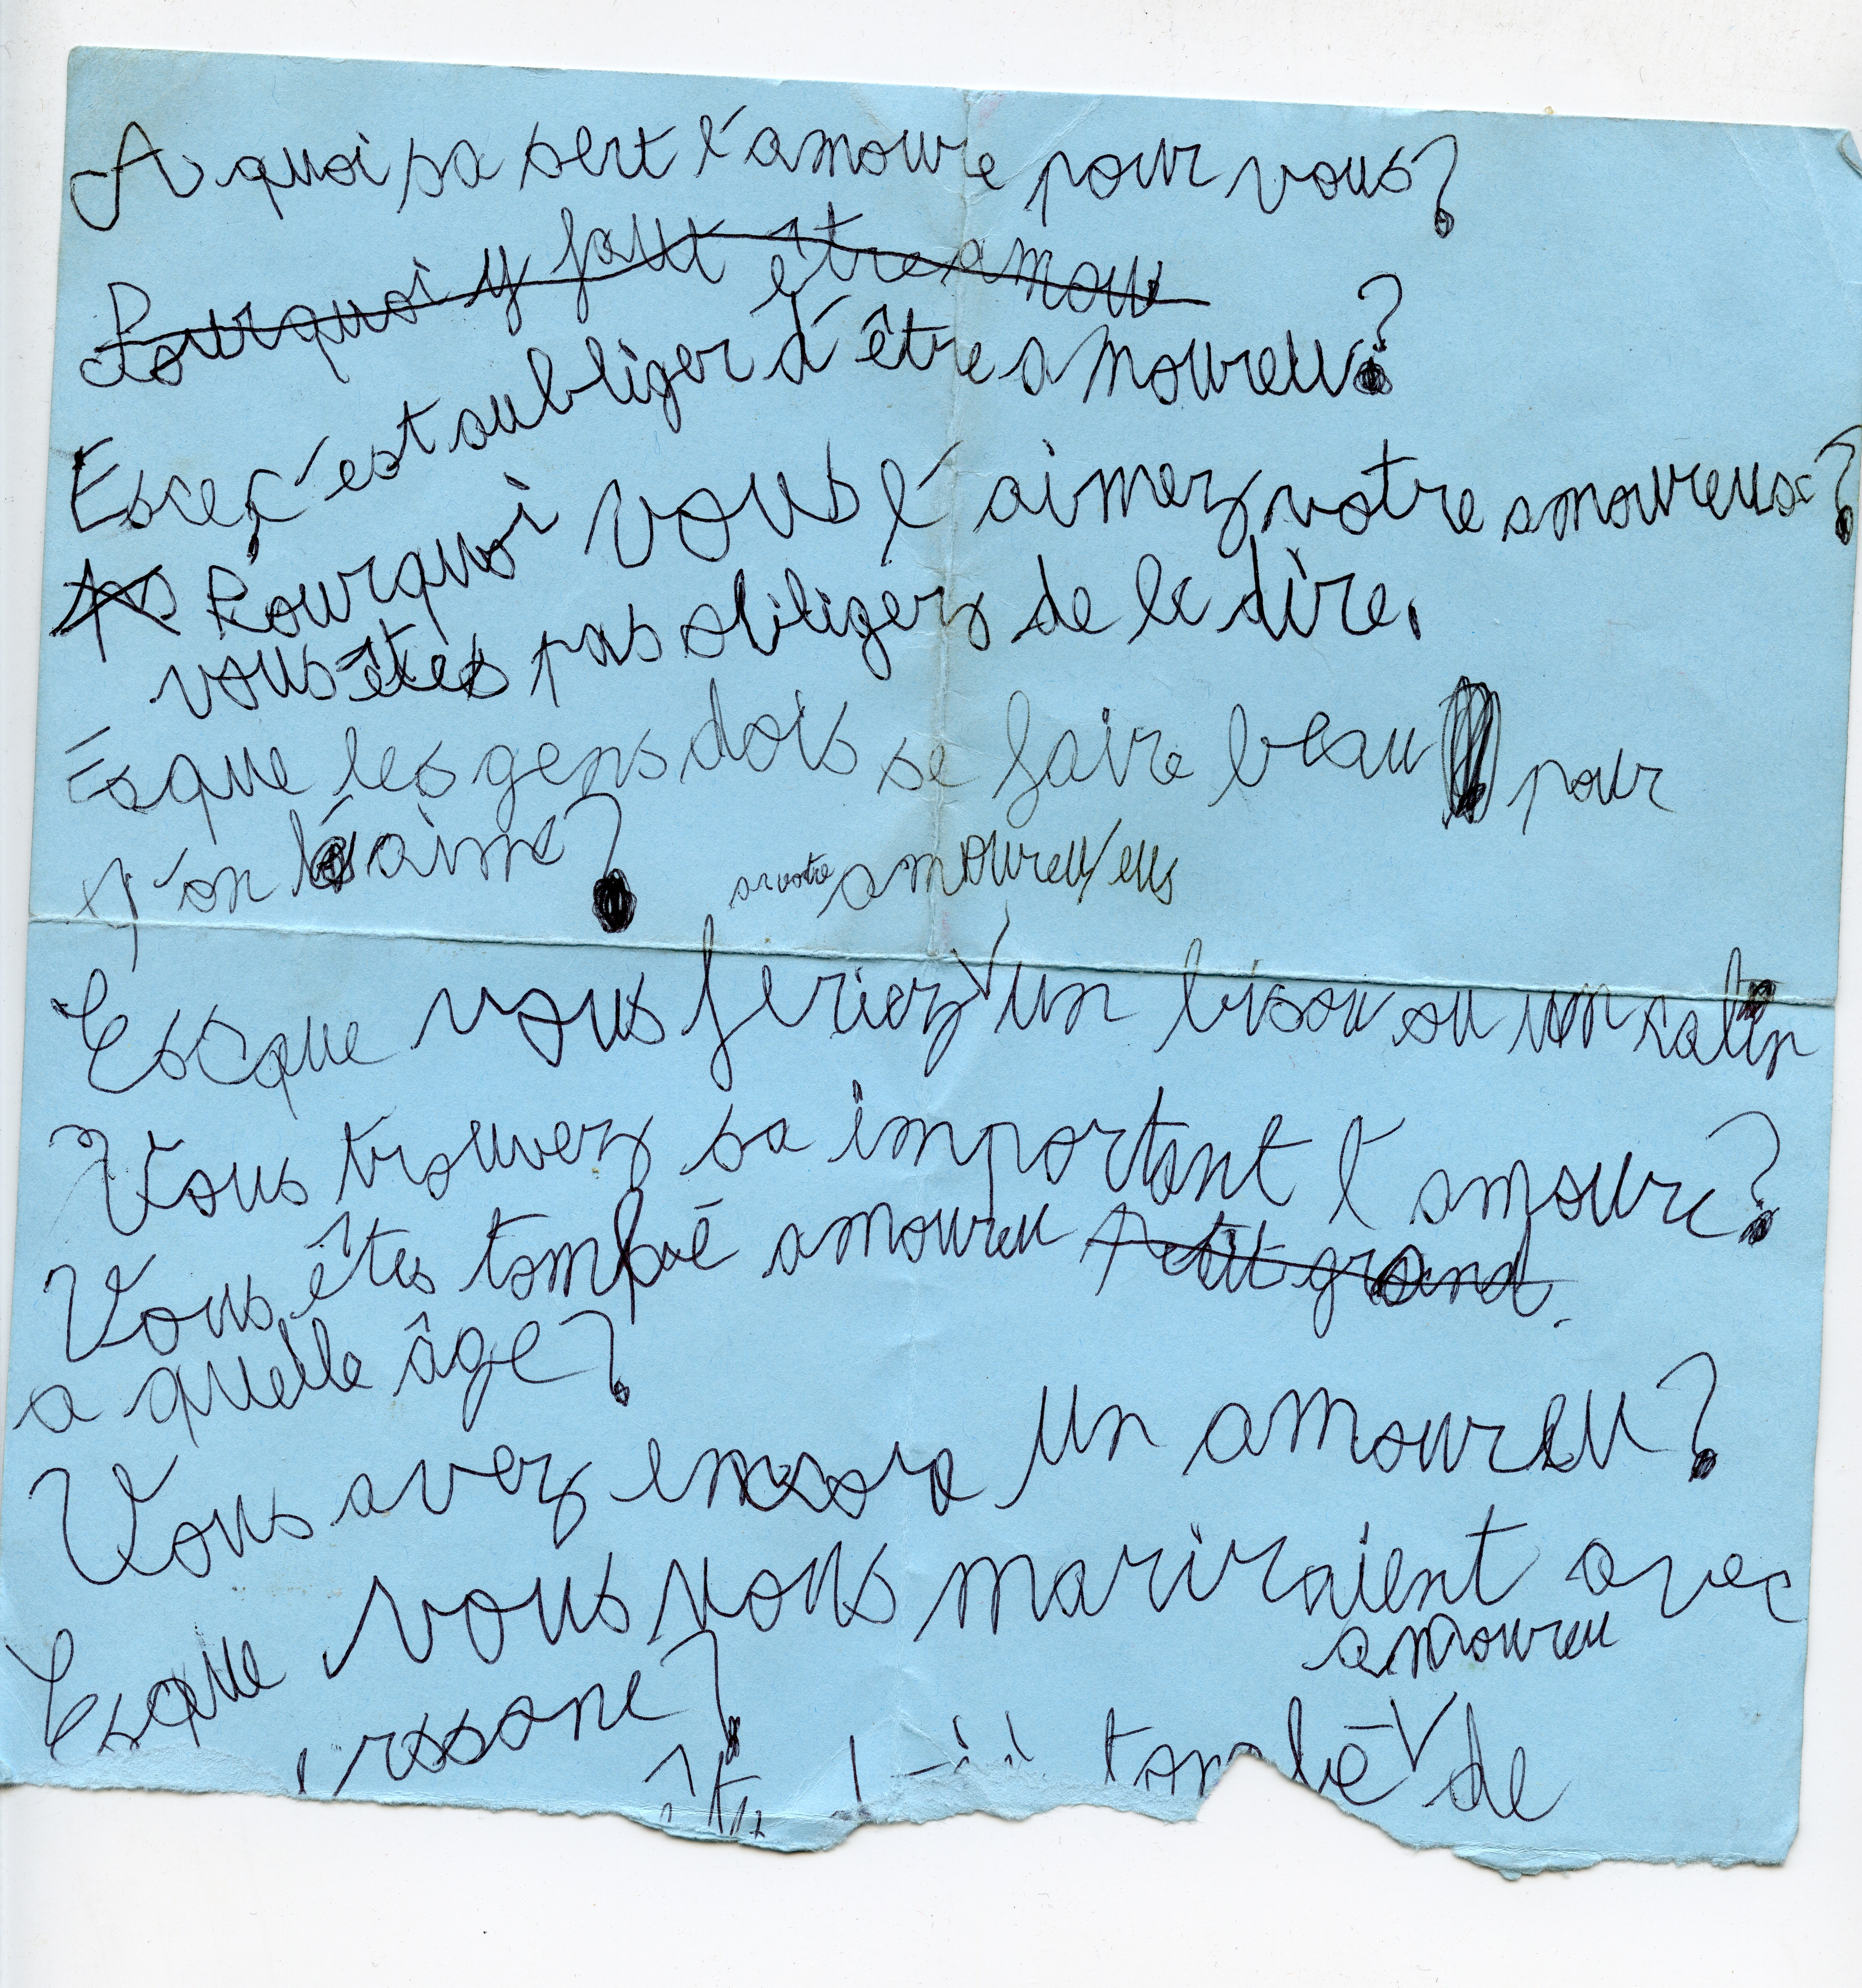 A quoi sa sert l'amoure pour vous?
Pourquoi y faut être amour
Esce c'est oubliger d'être amoureu?
Pourquoi vous l'aimez votre amoureus?
vous êtes pas obliligerz de le dire.
Esque les gens dois se faire beau pour
q'on l'aime?
a votre amoureu/eus
Escque vous feriez un bisou ou un calin
Vous trouvez sa important l'amoure?
Vous êtes tombé amoureu Petit grand.
a quelle âge?
Vous avez encora un amoureu?
Esque vous vous mariraient avec
amoureu
rssone?
tombé de